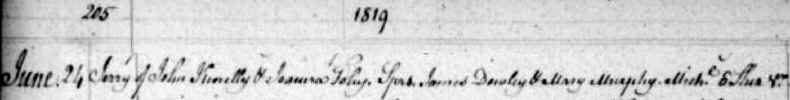 205 1819
June. 24 Jerry of John Kinelly & Joanna Foley. Sprs. James Dowley & Mary Murphy. Mich.